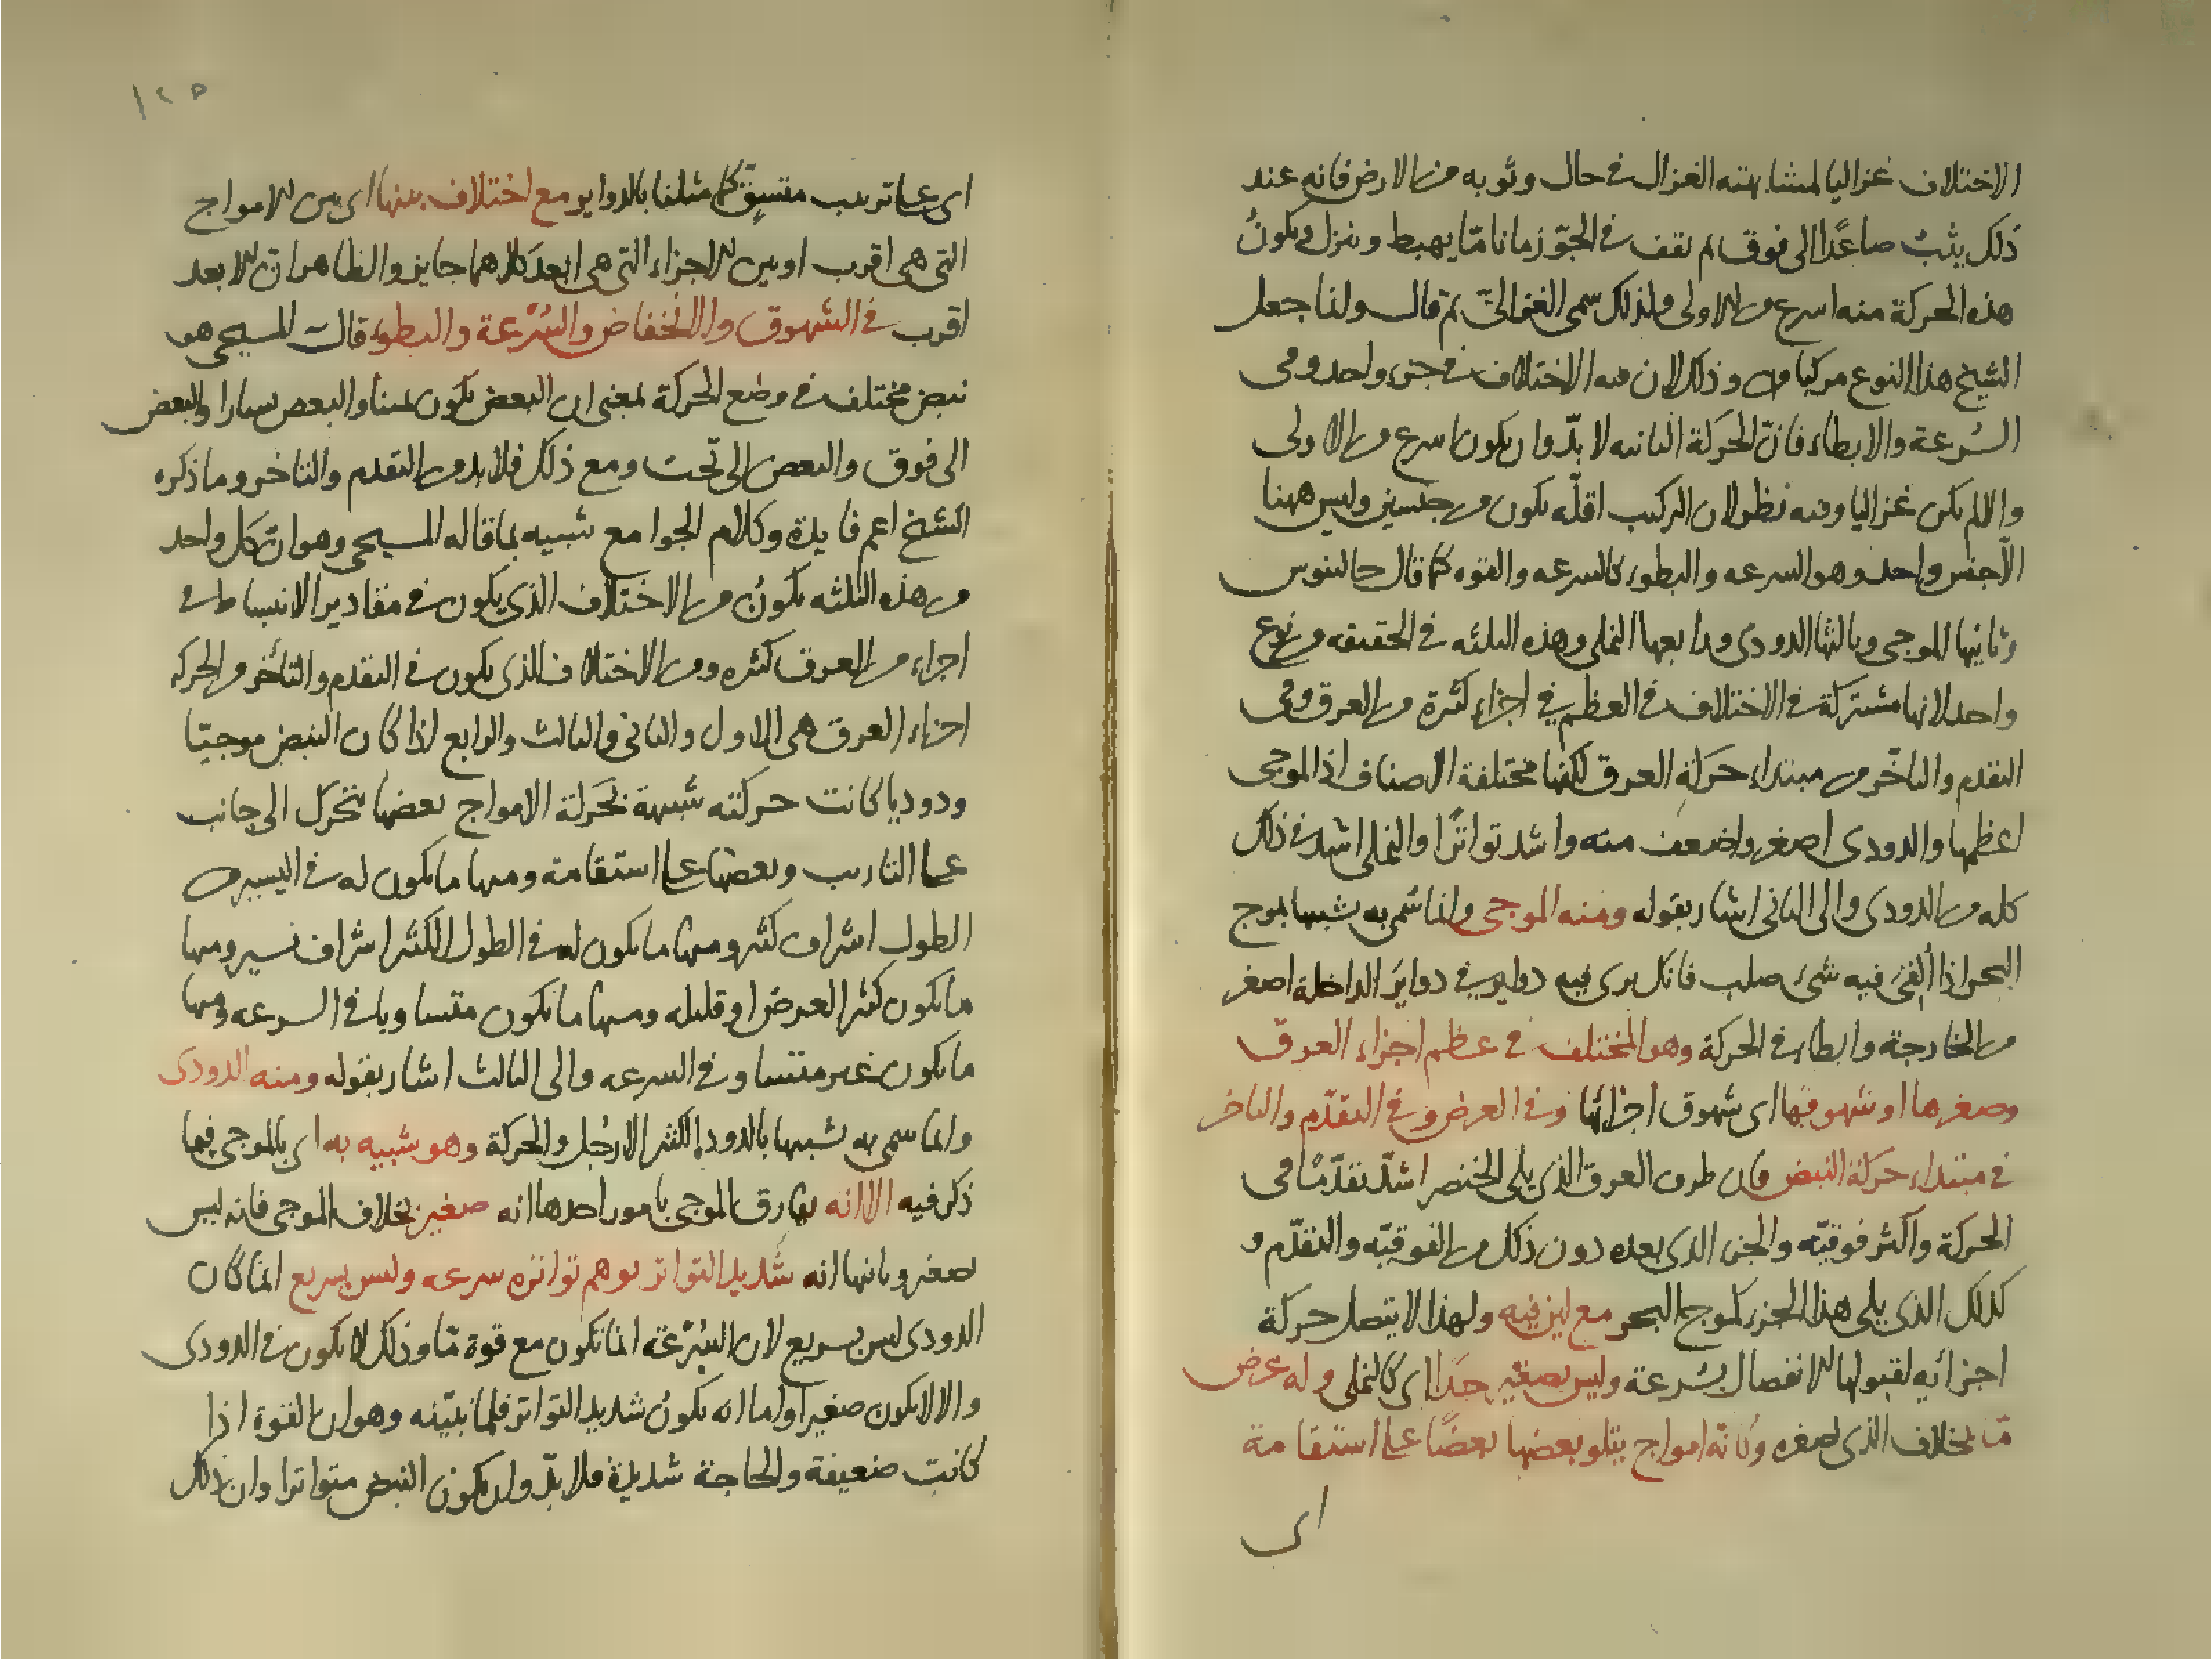 الاختلاف غزاليا لمشابهته الغزال فى حال وثوبه من الارض فانه عند
ذلك يثبت صاعدًا الى فوق ثم يقف فى الجوّ زمانا مّا يهبط وينزل ويكونُ
هذه الحركة منه اسرع من الاولى ولذلك سمى الغزالىّ ثم قال ولنا جعل
الشيخ هذا النوع مركبا من وذلك لان فيه الاختلاف فى جزء واحد وفى
السُرعة والابطاء فانّ الحركة الثانيه لا بدّ وان يكون اسرع من الاولى
والا لم يكن غزاليا وفيه نظر لان التركيب اقلّه يكون من جنسين وليس ههنا
الّا جنس واحد وهو السرعه والبطوء كالسرعه والقوه كما قال جالينوس
وثانيها الموجى وثالثها الدودى ورابعها النملى وهذه الثلثه فى الحقيقه من نوع
واحد لانها مشتركة فى الاختلاف فى العظم فى اجزاء كثرة من العرق وفى
التقدم والتاخّر من مبتداء حركة العرق لكنها مختلفة الاصناف اذ الموجى
اعظمها والدودى اصغر واضعف منه واشد تواترًا والنملى اشد فى ذلك
كله من الدودى والى الثانى اشار بقوله ومنه الموجى وانما سُمى به تشبيها بموج
البحر اذا أُلقىَ فيه شىء صلب فانك يرى فيه دواير فى دوايرَ الداخلة اصغر
من الخارجة وابطاء فى الحركة وهو المختلف فى عظم اجزاء العرق
وصغرها او شهوقها اى شهوق اجزائها وفى العرض وفى التقدّم والتاخر
فى مبتداء حركة النبض فان طرف العرق الذى يلى الخنصر اشدّ تقدّمًا فى
الحركة واكثر فوقيّه والجزء الذى بعده دون ذلك من الفوقيّه والتقدّم و
كذلك الذى يلى هذا الجزء كموج البحر مع لين فيه ولهذا لا يتصل حركة
اجزائه لقبولها الانفصال بسُرعة وليس بصغير جدا اى كالنملى وله عرض
مّا بخلاف الذى لصغره وكانّه امواج يتلو بعضها بعضًا على استقامة
اى
١٢٥
اى على ترتيب متسق كما مثلنا بالدواير مع اختلاف بينها اى بين الامواج
التى هى اقرب او بين الاجزاء التى هى ابعد كلاهما جايز والظاهر ان الابعد
اقرب فى الشهوق والانخفاض والسُرعة والبطوء قال المسيحى هو
نبض مختلف فى وضع الحركة لمعنى ان البعض يكون يمينا والبعض يسارا والبعض
الى فوق والبعض الى تحت ومع ذلك فلا بد من التقدم والتاخر وما ذكره
الشيخ اعم فايدة وكلام الجوامع شبيه بما قاله المسيحى وهو انّ كل واحد
من هذه الثلثه يكونُ من الاختلاف الذى يكون فى مقادير الانبساط فى
اجزاء من العرق كثيره ومن الاختلاف الذى يكون فى التقدم والتأخر من الحركه
اجزاء العرق هى الاول والثانى والثالث والرابع اذا كان النبض موجيّا
ودوديا كانت حركته شبيهة بحَركة الامواج بعضها يتحرك الى جانب
على التاريب وبعضها على استقامة ومنها ما يكون له فى اليسير من
الطول اشراف كثير ومنها ما يكون له فى الطول الكثير اشراف يسير ومنها
ما يكون كثير العرض او قليله ومنها ما يكون متساويا فى السرعه ومنها
ما يكون غير متساو فى السرعه والى الثالث اشار بقوله ومنه الدودى
وانما سمى به تشبيها بالدود الكثير الارجُل والحركة وهو شبيه به اى بالموجى فيها
ذكر فيه الا انه يفارق الموجى بامور احدها انه صغير بخلاف الموجى فانه ليس
بصغير وثانيها انه شديد التواتر يوهم تواتره سرعه وليس بسريع انما كان
الدودى ليس بسريع لان السُرْعَة انما تكون مع قوة مّا وذلك لا يكون فى الدودى
والا لا يكون صغيرا واما انه يكونُ شديد التواتر فلما نبيّنه وهو ان القوة اذا
كانت ضعيفة والحاجة شديدة فلا بدّ وان يكون النبض متواترا وان ذلك